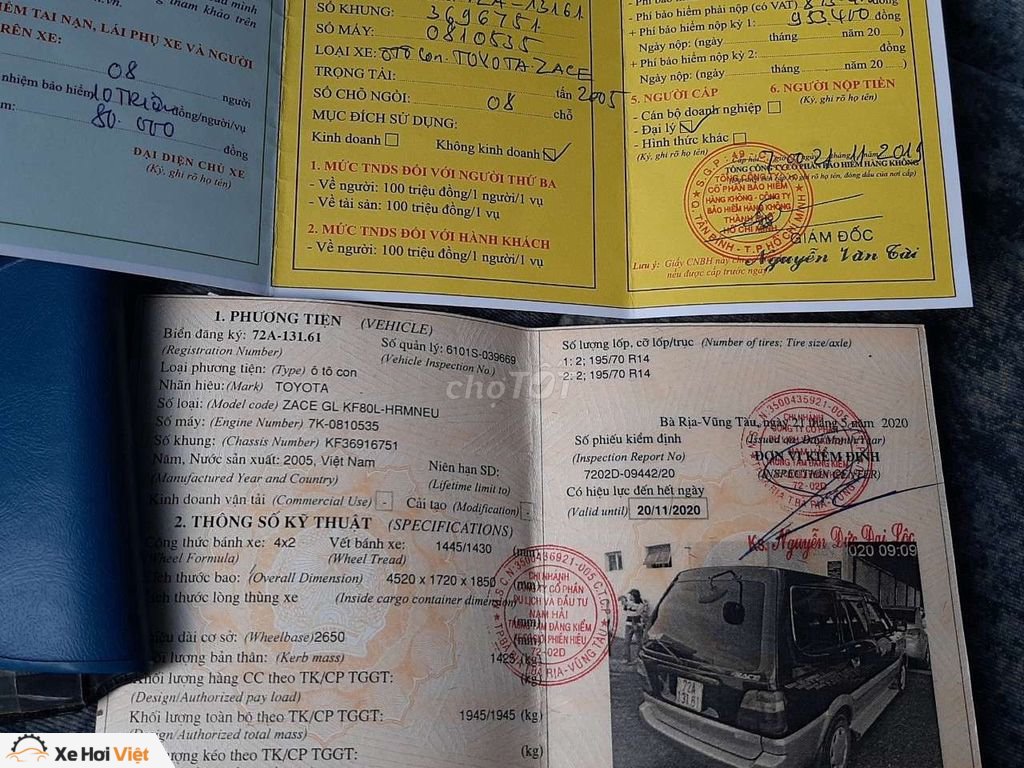 thông tham khảo trên
n.vn.
HIỂM TAI NẠN, LÁI PHỤ XE VÀ NGƯỜI
TRÊN XE:
08
người
nhiệm bảo hiểm
10 TRIỆU
đồng/người/vụ
80.000
đồng
ĐẠI DIỆN CHỦ XE
(Ký, ghi rõ họ tên)
SỐ KHUNG: 3696751
SỐ MÁY: 0810535
LOẠI XE: OTO Con TOYOTA ZACE
TRỌNG TẢI: tấn 2005
SỐ CHỖ NGỒI: 08 chỗ
MỤC ĐÍCH SỬ DỤNG:
Kinh doanh Không kinh doanh
1. MỨC TNDS ĐỐI VỚI NGƯỜI THỨ BA
- Về người: 100 triệu đồng/1 người/1 vụ
- Về tài sản: 100 triệu đồng/1 vụ
2. MỨC TNDS ĐỐI VỚI HÀNH KHÁCH
- Về người: 100 triệu đồng/1 người/1 vụ
- Phí bảo hiểm phải nộp (có VAT)
+ Phí bảo hiểm nộp kỳ 1: 953400 đồng
Ngày nộp: (ngày tháng năm 20 )
+ Phí bảo hiểm nộp kỳ 2: đồng
Ngày nộp: (ngày tháng năm 20 )
5. NGƯỜI CẤP 6. NGƯỜI NỘP TIỀN
(Ký, ghi rõ họ tên)
- Cán bộ doanh nghiệp
- Đại lý
- Hình thức khác
(Ký, ghi rõ họ tên)
21 tháng 11 năm 2019
TỔNG CÔNG TY CỔ PHẦN BẢO HIỂM HÀNG KHÔNG
TỔNG CÔNG TY
CỔ PHẦN BẢO HIỂM
HÀNG KHÔNG - CÔNG TY
BẢO HIỂM HÀNG KHÔNG
THÀNH PHỐ
HỒ CHÍ MINH
Q. TÂN BÌNH - T.P. HỒ CHÍ MINH
GIÁM ĐỐC
Nguyễn Văn Tài
Lưu ý: Giấy CNBH này
nếu được cấp trước ngày
1. PHƯƠNG TIỆN (VEHICLE)
Biển đăng ký: 72A-131.61 Số quản lý: 6101S-039669
(Registration Number) (Vehicle Inspection No.)
Loại phương tiện: (Type) ô tô con
Nhãn hiệu: (Mark) TOYOTA
Số loại: (Model code) ZACE GL KF80L-HRMNEU
Số máy: (Engine Number) 7K-0810535
Số khung: (Chassis Number) KF36916751
Năm, Nước sản xuất: 2005, Việt Nam Niên hạn SD:
(Manufactured Year and Country) (Lifetime limit to)
Kinh doanh vận tải (Commercial Use) - Cải tạo (Modification) -
2. THÔNG SỐ KỸ THUẬT (SPECIFICATIONS)
Công thức bánh xe: 4x2 Vết bánh xe: 1445/1430 (mm)
(Wheel Formula) (Wheel Tread)
Kích thước bao: (Overall Dimension) 4520 x 1720 x 1850 (mm)
thước lòng thùng xe (Inside cargo container dimension)
dài cơ sở: (Wheelbase) 2650 (mm)
lượng bản thân: (Kerb mass) 1425 (kg)
Khối lượng hàng CC theo TK/CP TGGT: (kg)
(Design/Authorized pay load)
Khối lượng toàn bộ theo TK/CP TGGT: 1945/1945 (kg)
(Design/Authorized total mass)
lượng kéo theo TK/CP TGGT: (kg)
Số lượng lốp, cỡ lốp/trục (Number of tires; Tire size/axle)
1: 2; 195/70 R14
2: 2; 195/70 R14
Bà Rịa-Vũng Tàu, ngày 21 tháng 5 năm 2020
Số phiếu kiểm định (Issued on: Day/Month/Year)
(Inspection Report No) ĐƠN VỊ KIỂM ĐỊNH
7202D-09442/20 (INSPECTION CENTER)
Có hiệu lực đến hết ngày
(Valid until) 20/11/2020
Ks. Nguyễn Đức Đại Lộc
M.S.C.N: 3500436921-005.C.T.C.P
CHI NHÁNH
CÔNG TY CỔ PHẦN
DU LỊCH VÀ ĐẦU TƯ
NAM HẢI
TRUNG TÂM ĐĂNG KIỂM
XE CƠ GIỚI PHIÊN HIỆU
72-02D
CHI NHÁNH
CÔNG TY CỔ PHẦN
TRUNG TÂM ĐĂNG KIỂM
72-02D
020 09:09
72A
131.61
chợTỐT
Xe Hơi Việt